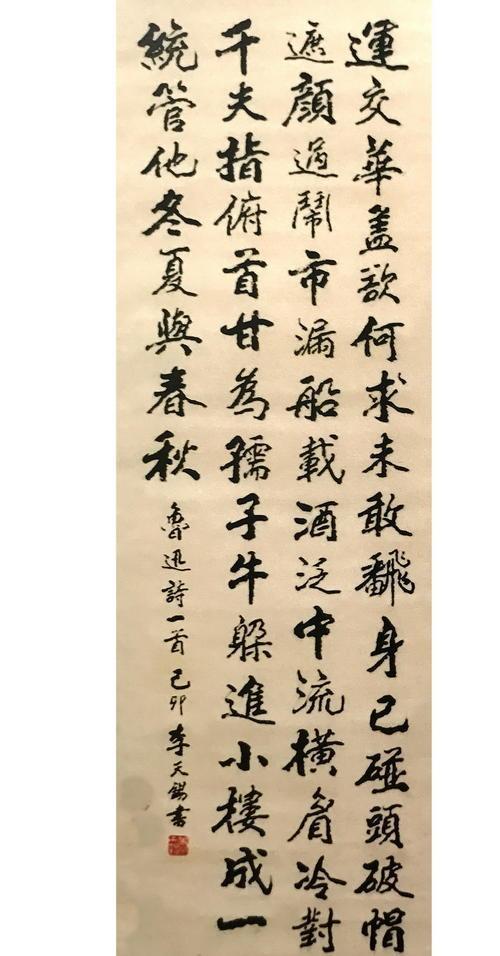 運交華盖欲何求未敢飜身已碰頭破帽
遮顔過鬧市漏船載酒泛中流橫眉冷對
千夫指俯首甘為孺子牛躲進小樓成一
統管他冬夏與春秋
魯迅詩一首己卯李天錫書